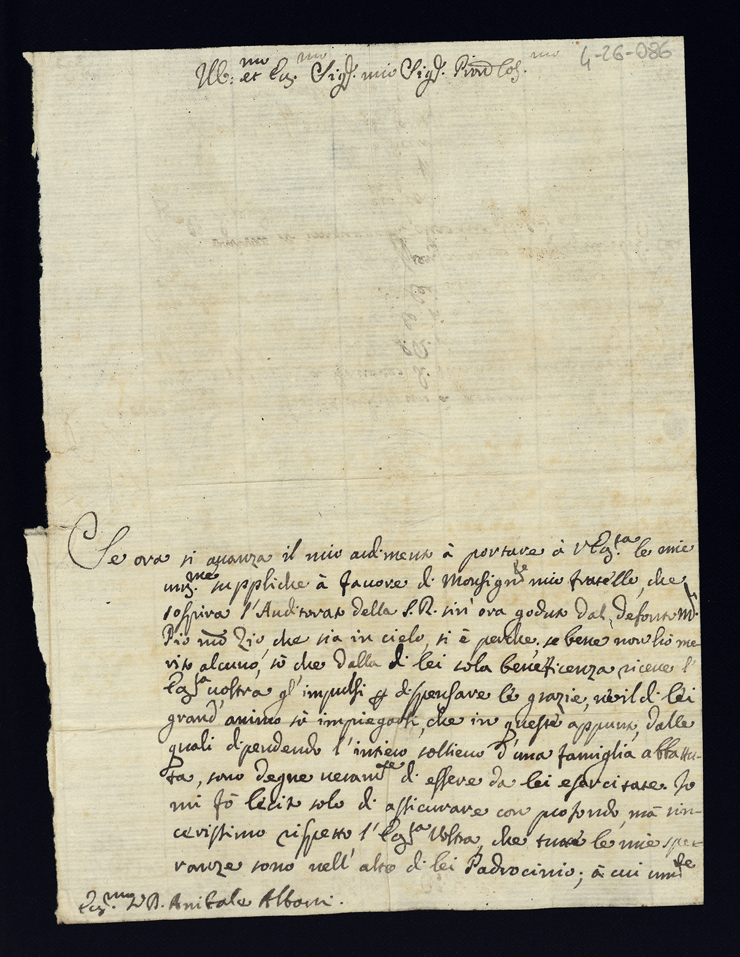 4-26-086
Ill:mo et Ecc.mo Sigr. mio Sigr. Pron Col.mo
Se ora si avanza il mio ardimento à portare à V Ecc.za le mie
um.me suppliche à favore di Monsigre mio fratello, che
sospira l'Auditorato della S. R. sin' ora goduto dal defonto M.
Pio mio Zio che sia in cielo, si è perche, se bene non hò me-
rito alcuno, sò che dalla di lei sola beneficenza riceve l'
Ecc.za vostra gl'impulsi p dispensare le grazie, ne il di lei
grand' animo sà impiegarsi, che in queste appunto, dalle
quali dipendendo l'intiero sollievo d'una famiglia abbattu-
ta, sono degne veramte di essere da lei esercitate. Io
mi fò lecito solo di assicurare con profondo, mà sin-
cerissimo rispetto l'Ecc.za Vostra, che tutte le mie spe-
ranze sono nell' alto di lei Padrocinio; à cui umte
Ecc.mo D. Anibale Albani.